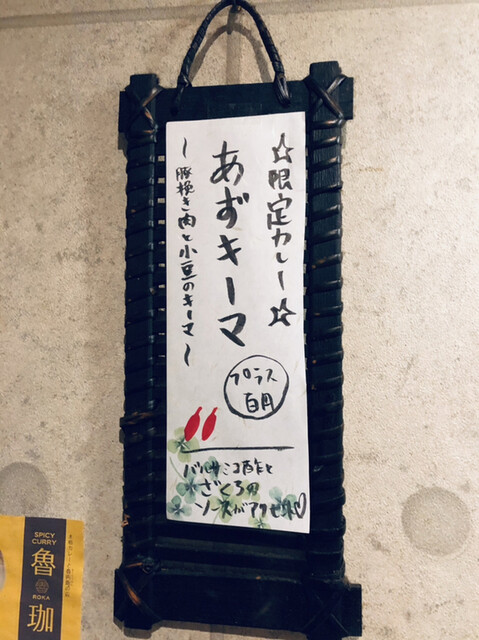 ☆限定カレー☆
あずキーマ
〜豚挽き肉と小豆のキーマ〜
プラス
百円
バルサミコ酢と
ざくろの
ソースがアクセント♡
SPICY
CURRY
魯
ROKA
珈